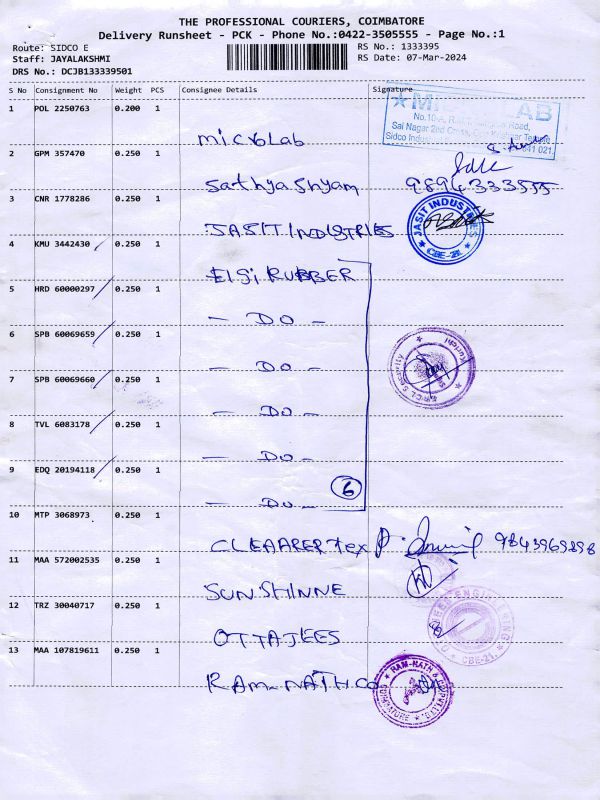 THE PROFESSIONAL COURIERS, COIMBATORE
Delivery Runsheet - PCK - Phone No.:0422-3505555 - Page No.:1
Route: SIDCO E
RS No.: 1333395
Staff: JAYALAKSHMI
RS Date: 07-Mar-2024
DRS No.: DCJB133339501
S No Consignment No Weight PCS Consignee Details Signature
1 POL 2250763 0.200 1
No.10-A,
Road,
Sai Nagar 2nd
Sidco Indus
641 021.
microLab
2 GPM 357470 0.250 1
Sathya Shyam 9894333555
3 CNR 1778286 0.250 1
JASIT INDUSTRIES
JASIT INDUSTRIES
CBE-21.
4 KMU 3442430 0.250 1
ElGi RUBBER
5 HRD 60000297 0.250 1
- DO -
6 SPB 60069659 0.250 1
- DO -
Security
7 SPB 60069660 0.250 1
- DO -
8 TVL 6083178 0.250 1
- DO -
9 EDQ 20194118 0.250 1
- DO -
6
10 MTP 3068973 0.250 1
CLEARER tex
11 MAA 572002535 0.250 1
SUNSHINNE
12 TRZ 30040717 0.250 1
ENGINEERING
CBE-21.
OTTAJEES
13 MAA 107819611 0.250 1
RAM-NATH CO
RAM-NATH &
COIMBATORE